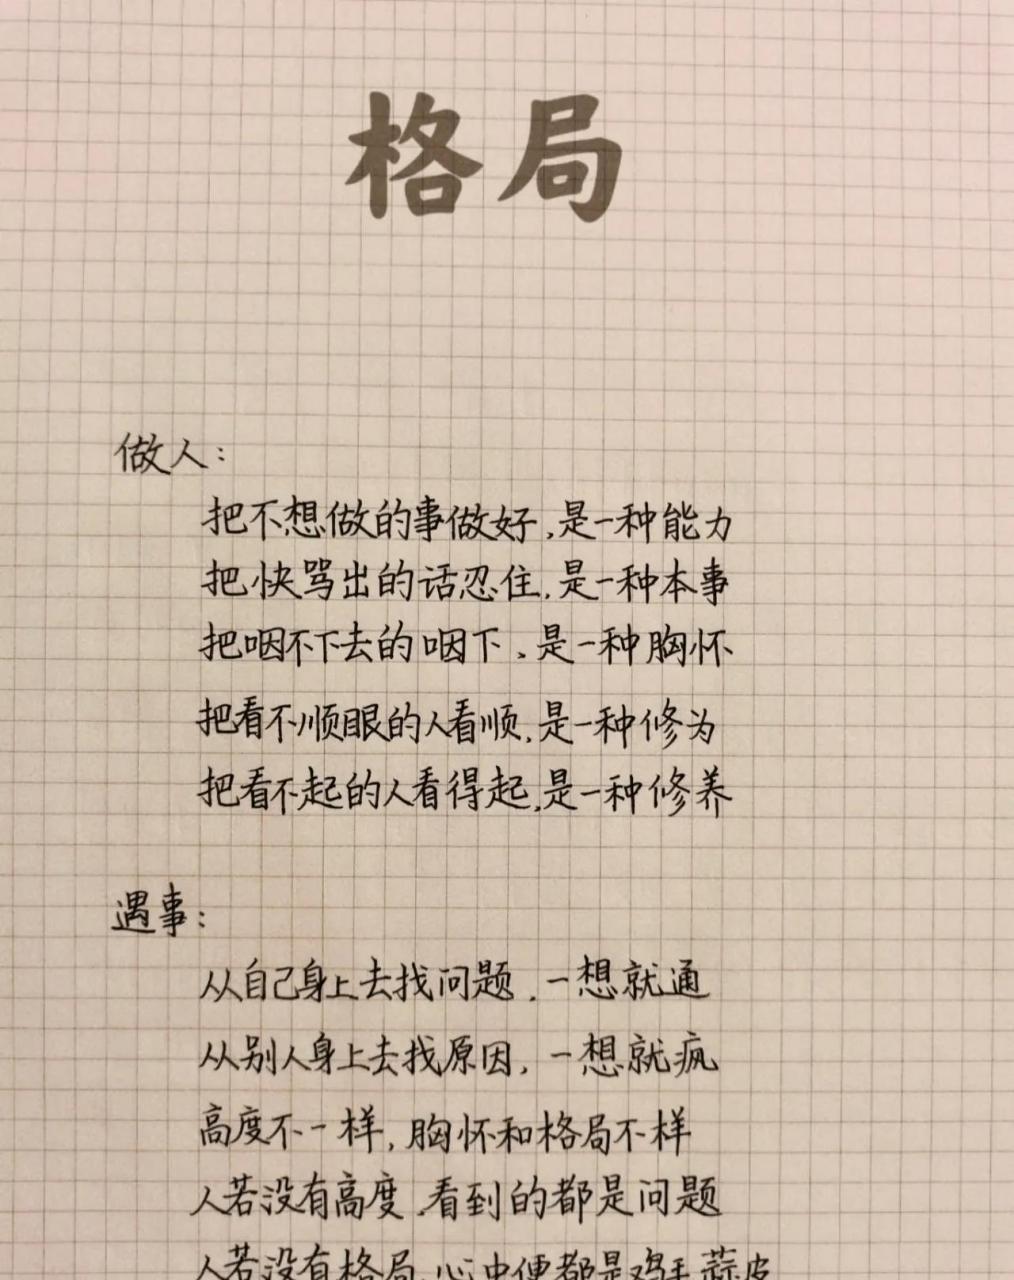 格局
做人：
把不想做的事做好，是一种能力
把快骂出的话忍住，是一种本事
把咽不下去的咽下，是一种胸怀
把看不顺眼的人看顺，是一种修为
把看不起的人看得起，是一种修养
遇事：
从自己身上去找问题，一想就通
从别人身上去找原因，一想就疯
高度不一样，胸怀和格局不样
人若没有高度，看到的都是问题
人若没有格局，心中便都是鸡毛蒜皮